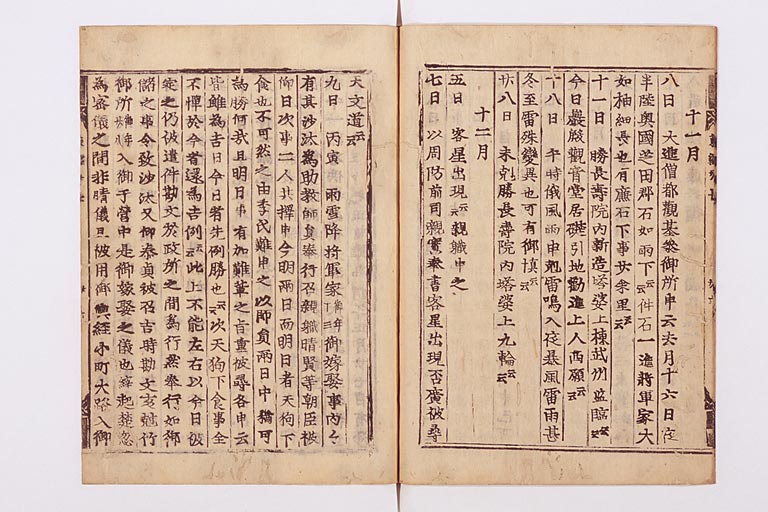 十一月
八日 大進僧都觀基參御所申云去月十六日夜
半陸奧國芝田郡石如雨下云云件石一進將軍家大
如柚細長也有廉石下事廿餘里云云
十一日 勝長壽院內新造塔婆上棟武州監臨云云
今日巖殿觀音堂居礎引地勸進上人西願云云
十八日 午時俄風雨申剋雷鳴入夜暴風雷雨甚
冬至雷殊變異也可有御愼云云
廿八日 未剋勝長壽院內塔婆上九輪云云
十二月
五日 客星出現云云親職申之
七日 以周防前司親實奉書客星出現否廣被尋
天文道云云
九日 丙寅 雨雪降將軍家御嫁娶事內々
有其沙汰爲助教師員奉行召親職晴賢等朝臣被
仰日次事二人共擇申今明兩日而明日者天狗下
食也不可然之由季氏難申之以師員兩日中猶可
爲勝何哉且明日事有加難輩之旨重被尋各申云
皆雖爲吉日今日者先例勝也云云次天狗下食事全
不憚於今者還爲吉例云云此上不能左右以今日被
定之仍被遣件勘文於政所之間爲行然奉行如御
儲之事令致沙汰又御泰貞被召吉時勘文亥剋竹
御所入御于營中是御嫁娶之儀也雖起楚忽
爲密儀之間非晴儀且被用御輿經小町大路入御